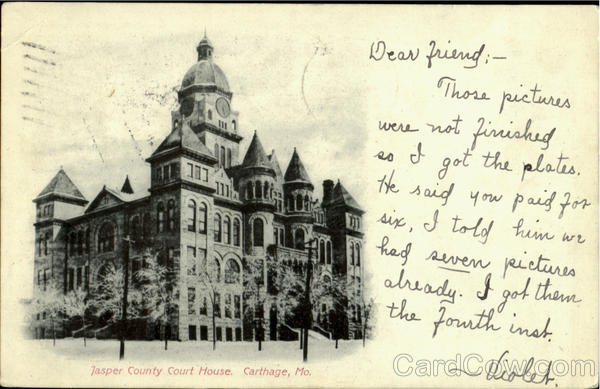 Dear friend;—
Those pictures
were not finished
so I got the plates.
He said you paid for
six, I told him we
had seven pictures
already. I got them
the fourth inst.
~ Violet.
Jasper County Court House. Carthage, Mo.
CardCow.com